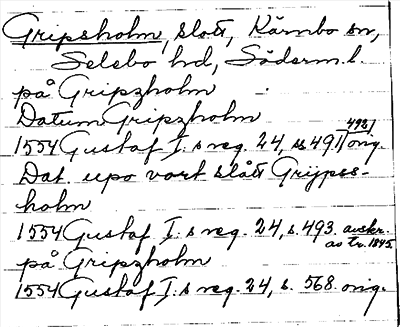 Gripsholm, slott, Kärnbo sn,
Selebo hd, Söderm. l.
på Gripzholm
Datum Gripzholm
1554 Gustaf I:s reg. 24, s. 491 (493) orig.
Dat. upo vort slått Grijpss-
holm
1554 Gustaf I:s reg. 24, s. 493. avskr.
av tr. 1845.
på Gripzholm
1554 Gustaf I:s reg. 24, s. 568. orig.